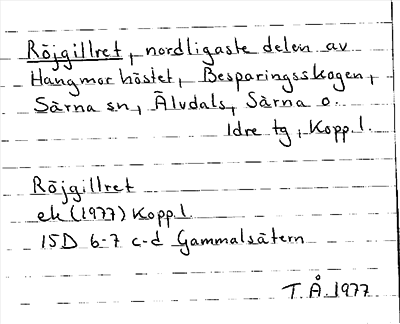 Röjgillret, nordligaste delen av
Hangmorhöstet, Besparingsskogen,
Särna sn, Älvdals, Särna o.
Idre tg, Kopp.l.
Röjgillret
ek (1977) Kopp.l
15D 6-7 c-d Gammalsätern
T.Å.1977